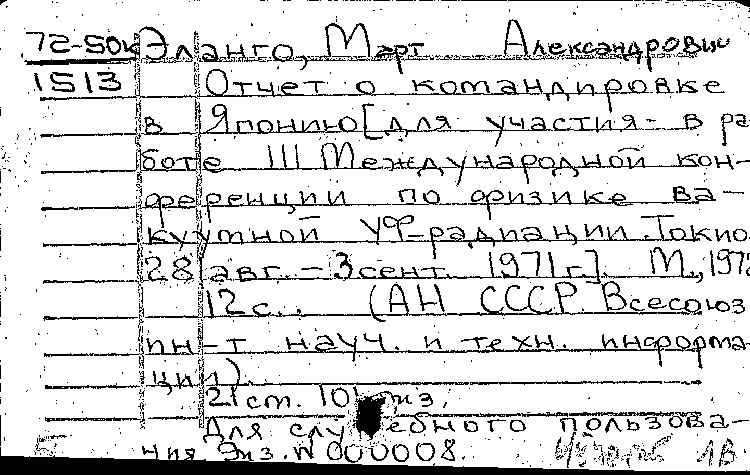 72-50к Эланго, Март Александрович
1513 Отчет о командировке
в Японию [для участия в ра-
боте III Международной кон-
ференции по физике ва-
куумной УФ-радиации. Токио
28 авг. - 3 сент. 1971 г.]. М., 197
12 с., (АН СССР. Всесоюз
ин-т науч. и техн. информа-
ции).
21 см. 10 экз.
Для слу ебного пользова-
ния. Экз. № 000008. 1В